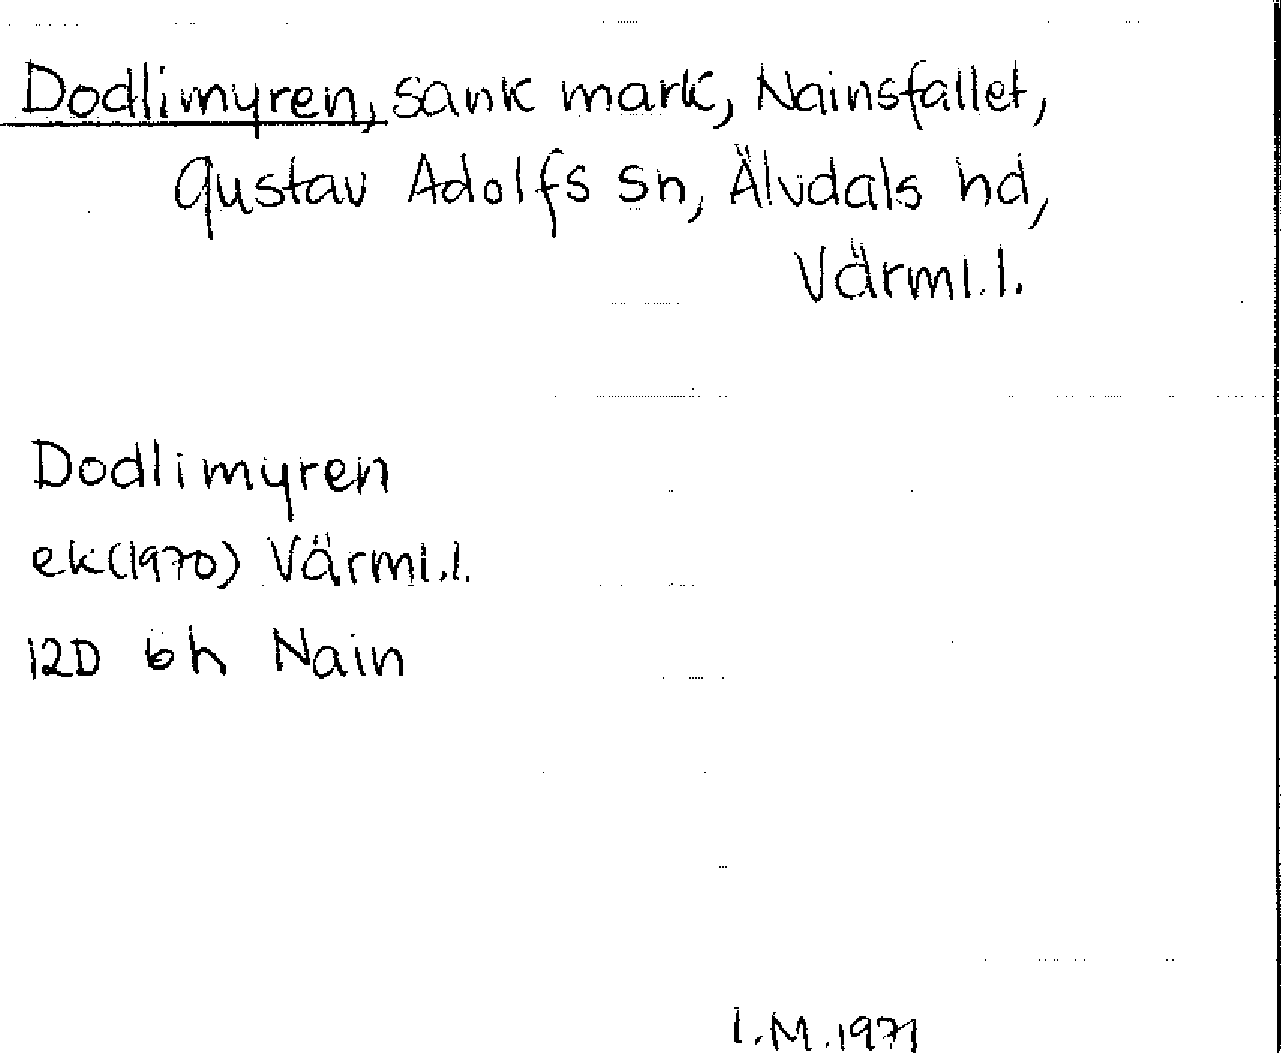 Dodlimyren, sank mark, Nainsfallet,
Gustav Adolfs sn, Älvdals hd,
Värml.l.
Dodlimyren
ek(1970) Värml.l.
12D 6h Nain
I.M.1971